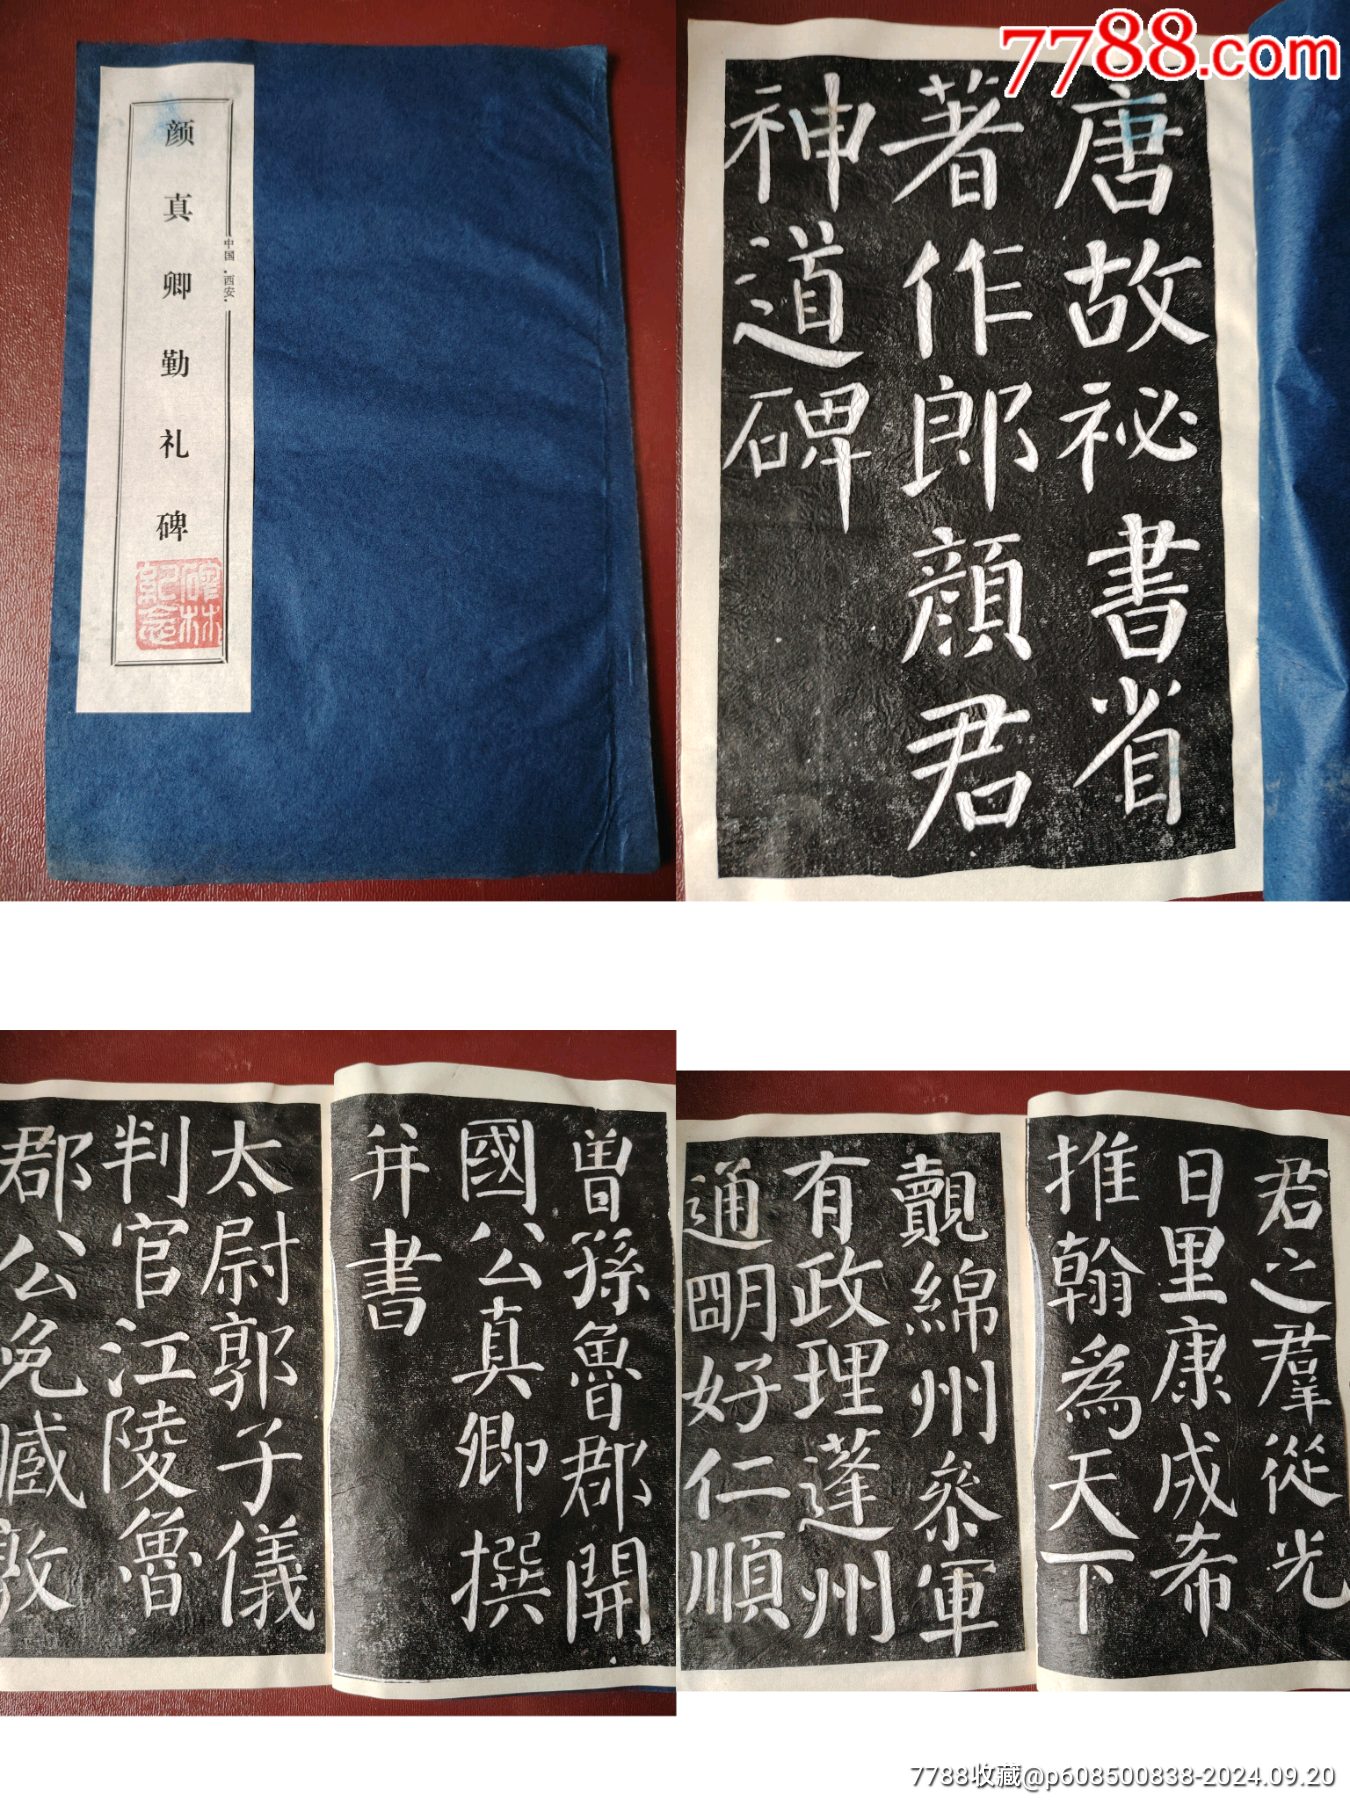 颜真卿勤礼碑
中国·西安
碑林紀念
7788.com
唐故祕書省
著作郎顏君
神道碑
曾孫魯郡開
國公真卿撰
并書
太尉郭子儀
判官江陵魯
郡公免臧
君之羣從光
日里康成希
推翰為天下
覿綿州參軍
有政理蓬州
通朙好仁順
7788收藏@p608500838-2024.09.20